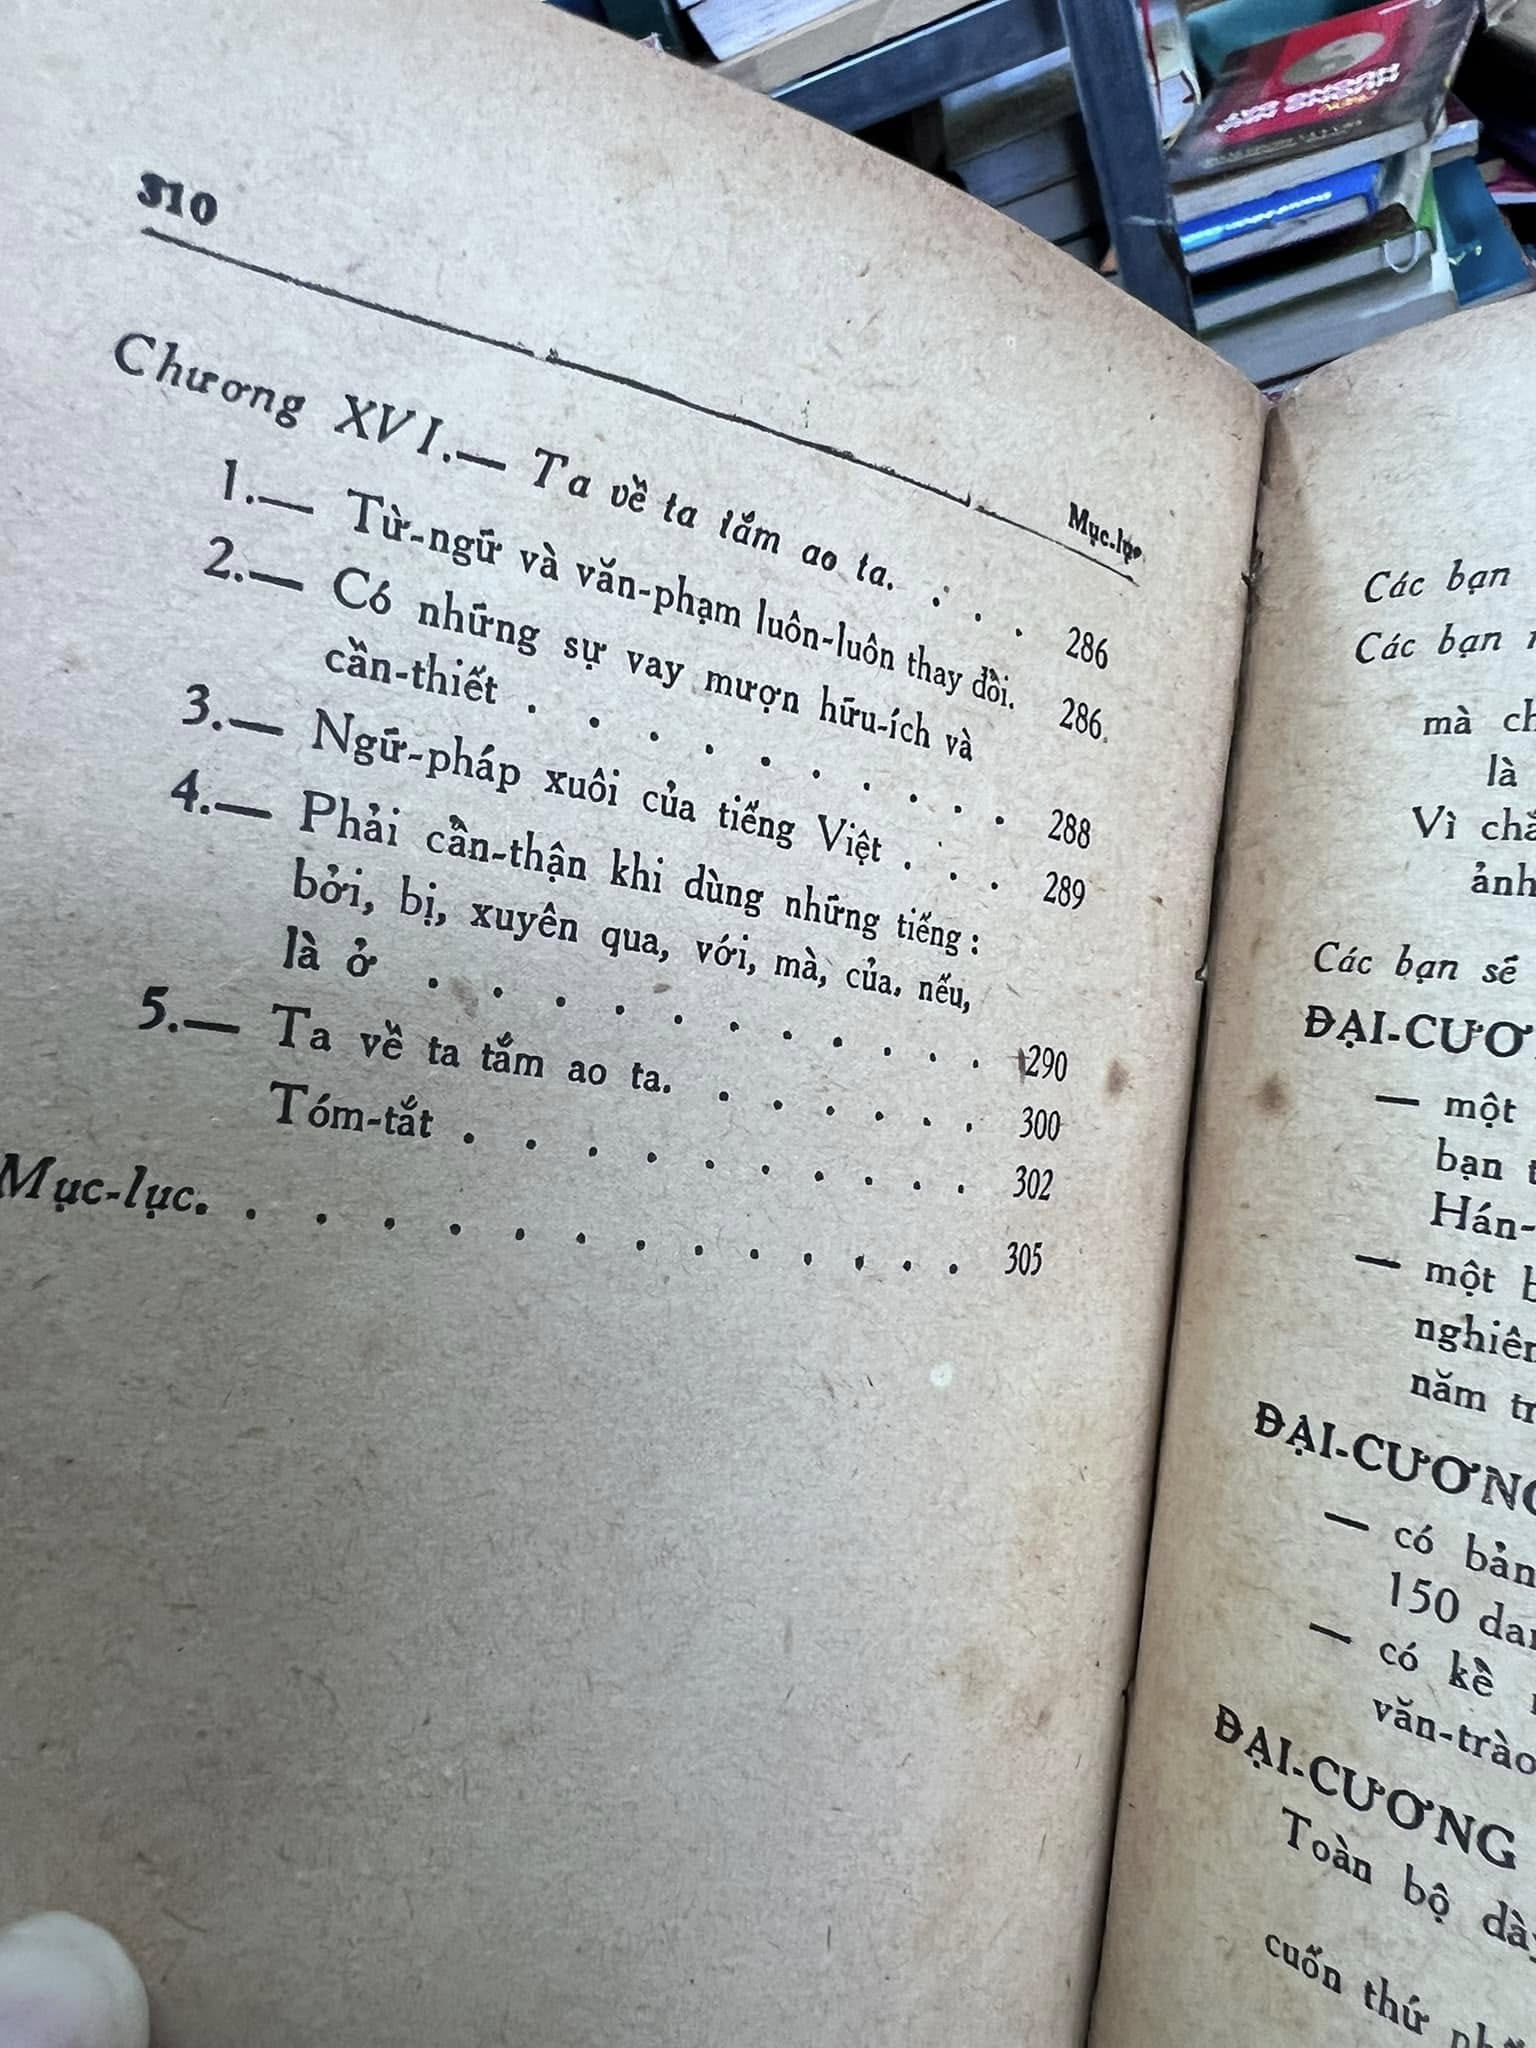 310
Mục-lục
Chương XVI.— Ta về ta tắm ao ta. . . . 286
1.— Từ-ngữ và văn-phạm luôn-luôn thay đổi. 286
2.— Có những sự vay mượn hữu-ích và
cần-thiết . . . . . . . . . . 288
3.— Ngữ-pháp xuôi của tiếng Việt . . . . 289
4.— Phải cẩn-thận khi dùng những tiếng :
bởi, bị, xuyên qua, với, mà, của, nếu,
là ở . . . . . . . . . . 290
5.— Ta về ta tắm ao ta. . . . . . . 300
Tóm-tắt . . . . . . . . . 302
Mục-lục. . . . . . . . . . . . . 305
Các bạn
Các bạn
mà
là
Vì
ảnh
Các bạn sẽ
ĐẠI-CƯƠ
— một
bạn
Hán-
— một
nghiên
năm
ĐẠI-CƯƠNG
— có bản
150
— có kể
văn-trào
ĐẠI-CƯƠNG
Toàn bộ dày
cuốn thứ